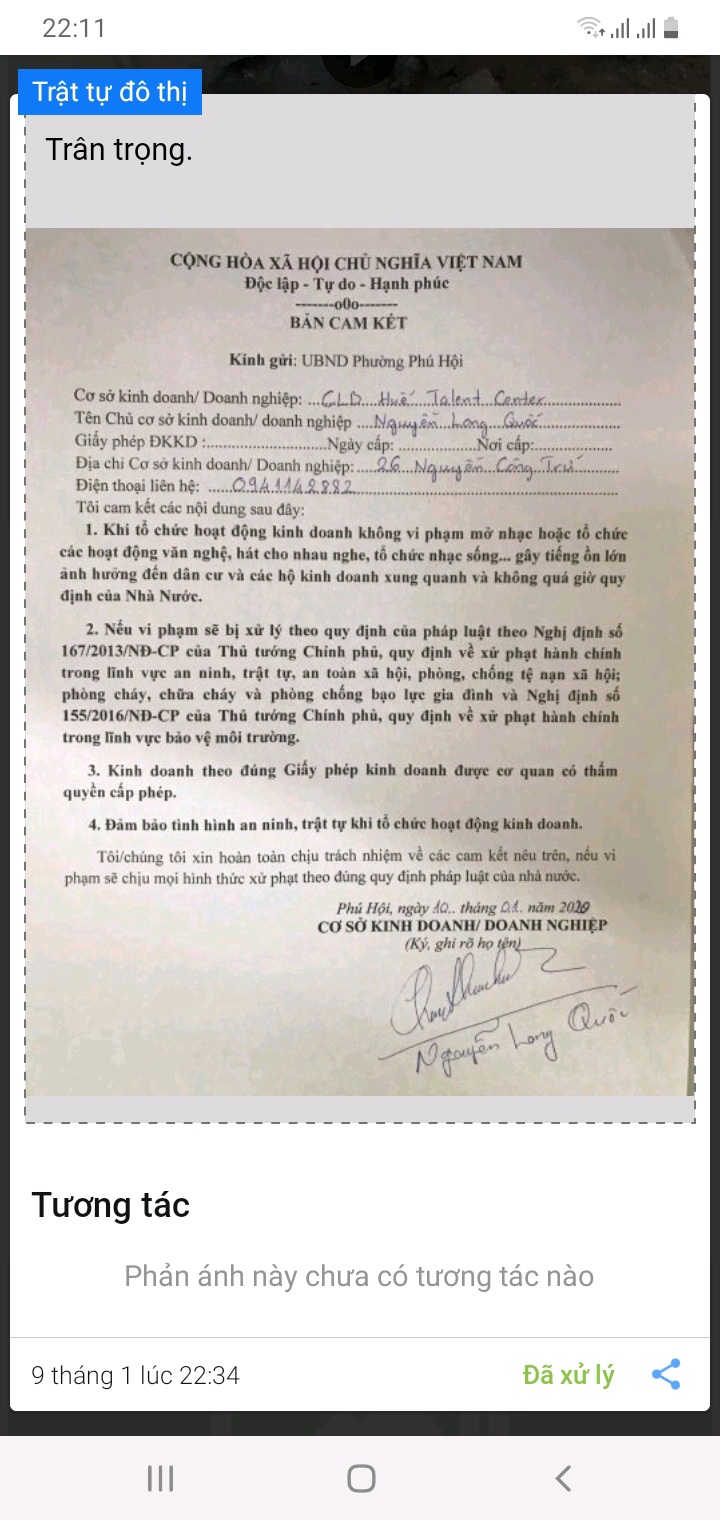 22:11
Trật tự đô thị
Trân trọng.
CỘNG HÒA XÃ HỘI CHỦ NGHĨA VIỆT NAM
Độc lập - Tự do - Hạnh phúc
-------o0o-------
BẢN CAM KẾT
Kính gửi: UBND Phường Phú Hội
Cơ sở kinh doanh/ Doanh nghiệp: ...CLD...Huế...Talent...Center...
Tên Chủ cơ sở kinh doanh/ doanh nghiệp ....Nguyễn...Long...Quốc...
Giấy phép ĐKKD :........................Ngày cấp: ...............Nơi cấp:...............
Địa chỉ Cơ sở kinh doanh/ Doanh nghiệp: ....26...Nguyễn...Công Trứ...
Điện thoại liên hệ: .....0941142882...
Tôi cam kết các nội dung sau đây:
1. Khi tổ chức hoạt động kinh doanh không vi phạm mở nhạc hoặc tổ chức
các hoạt động văn nghệ, hát cho nhau nghe, tổ chức nhạc sống... gây tiếng ồn lớn
ảnh hưởng đến dân cư và các hộ kinh doanh xung quanh và không quá giờ quy
định của Nhà Nước.
2. Nếu vi phạm sẽ bị xử lý theo quy định của pháp luật theo Nghị định số
167/2013/NĐ-CP của Thủ tướng Chính phủ, quy định về xử phạt hành chính
trong lĩnh vực an ninh, trật tự, an toàn xã hội, phòng, chống tệ nạn xã hội;
phòng cháy, chữa cháy và phòng chống bạo lực gia đình và Nghị định số
155/2016/NĐ-CP của Thủ tướng Chính phủ, quy định về xử phạt hành chính
trong lĩnh vực bảo vệ môi trường.
3. Kinh doanh theo đúng Giấy phép kinh doanh được cơ quan có thẩm
quyền cấp phép.
4. Đảm bảo tình hình an ninh, trật tự khi tổ chức hoạt động kinh doanh.
Tôi/chúng tôi xin hoàn toàn chịu trách nhiệm về các cam kết nêu trên, nếu vi
phạm sẽ chịu mọi hình thức xử phạt theo đúng quy định pháp luật của nhà nước.
Phú Hội, ngày 10.. tháng 01. năm 2020
CƠ SỞ KINH DOANH/ DOANH NGHIỆP
(Ký, ghi rõ họ tên)
Nguyễn Long Quốc
Tương tác
Phản ánh này chưa có tương tác nào
9 tháng 1 lúc 22:34
Đã xử lý